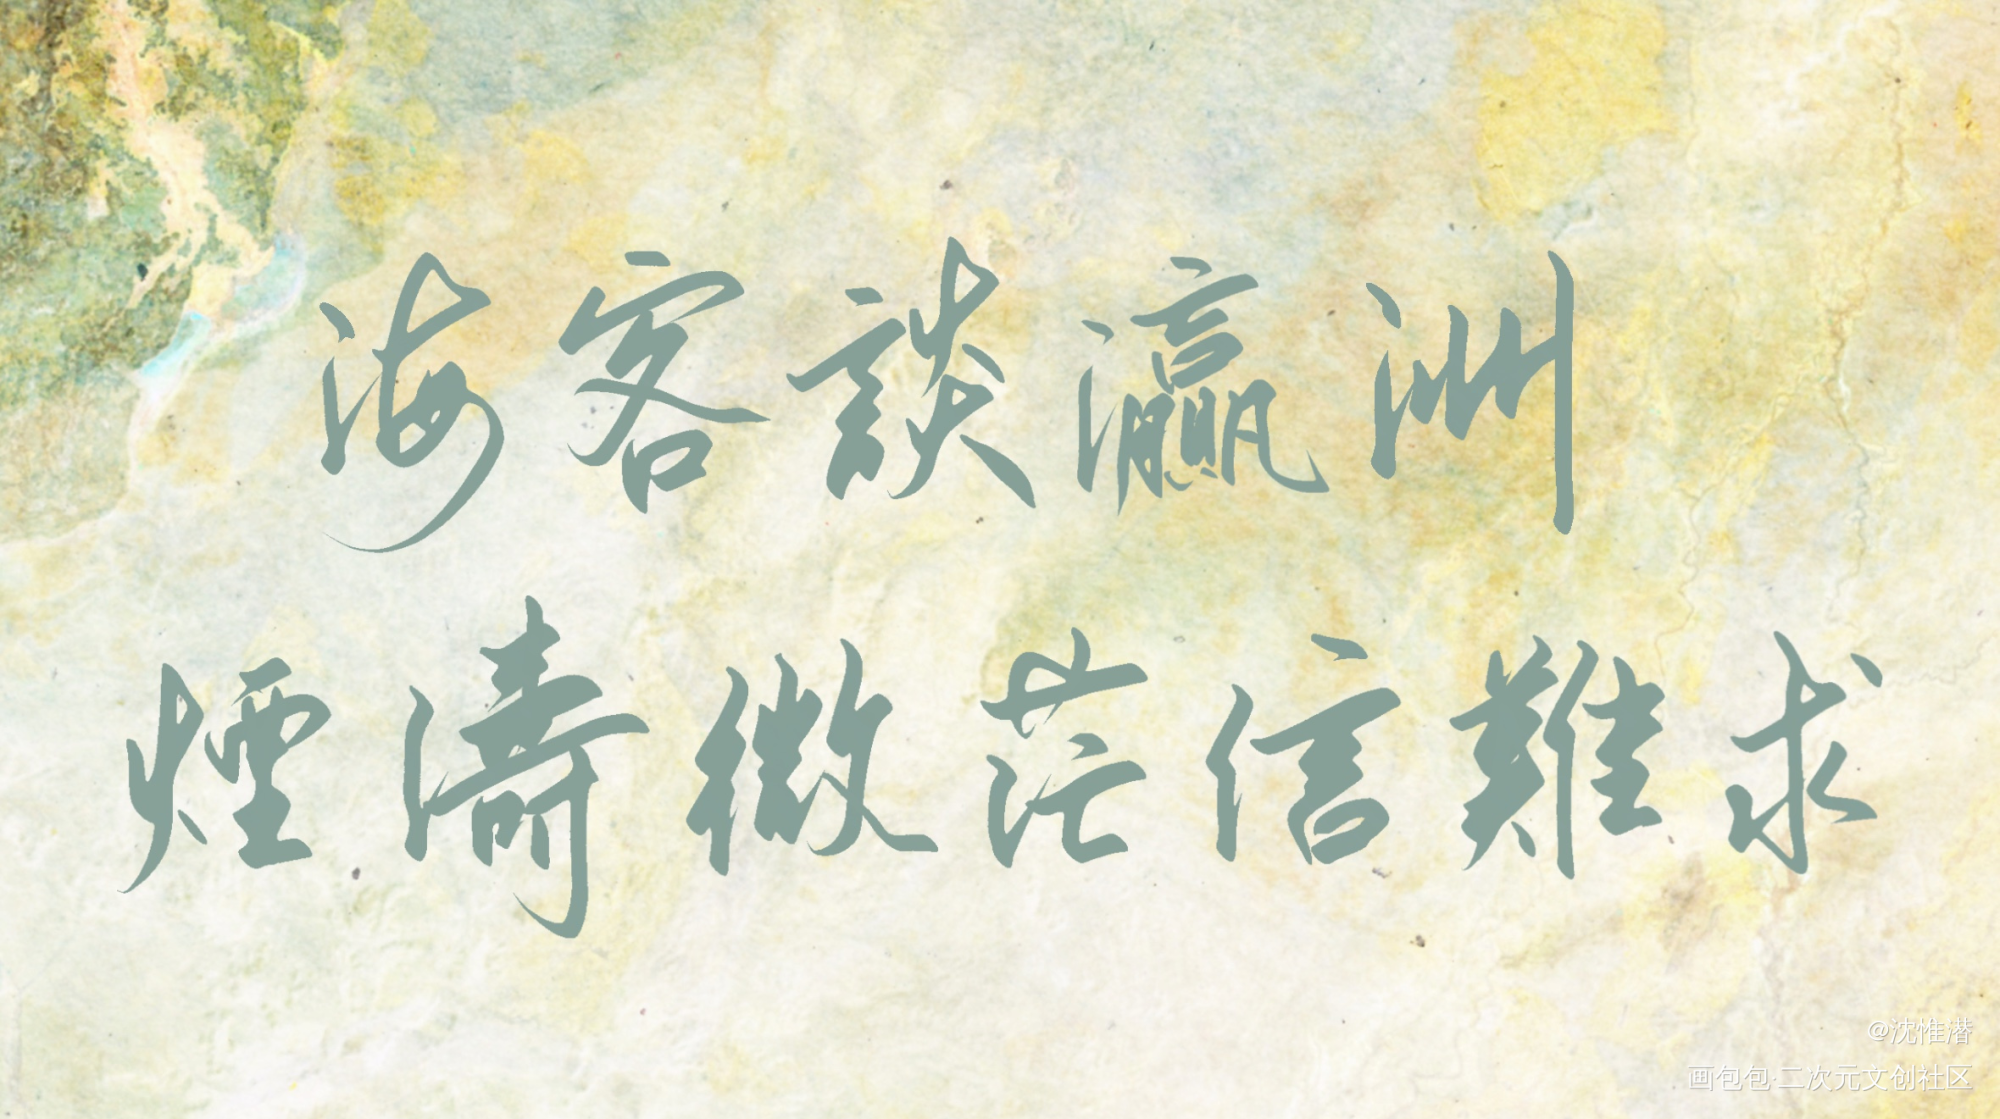 海客談瀛洲
煙濤微茫信難求
@沈惟潜
画包包·二次元文创社区